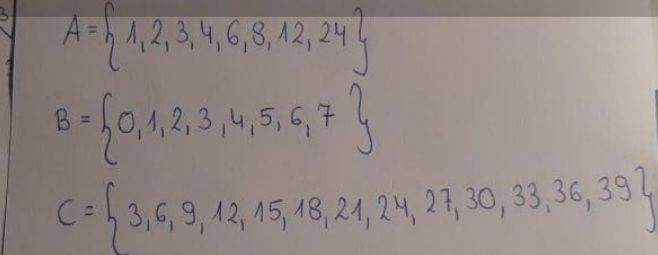 A = { 1, 2, 3, 4, 6, 8, 12, 24 }
B = { 0, 1, 2, 3, 4, 5, 6, 7 }
C = { 3, 6, 9, 12, 15, 18, 21, 24, 27, 30, 33, 36, 39 }